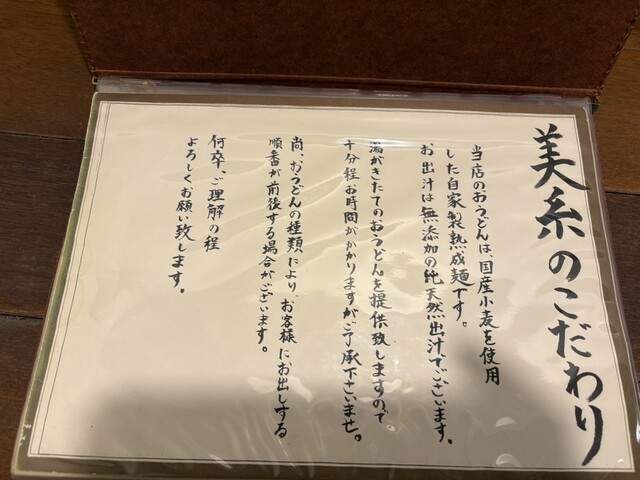 美糸のこだわり
当店のおうどんは、国産小麦を使用
した自家製熟成麺です。
お出汁は無添加の純天然出汁でございます。
湯がきたてのおうどんを提供致しますので
十分程お時間がかかりますがご了承下さいませ。
尚、おうどんの種類により、お客様にお出しする
順番が前後する場合がございます。
何卒、ご理解の程
よろしくお願い致します。